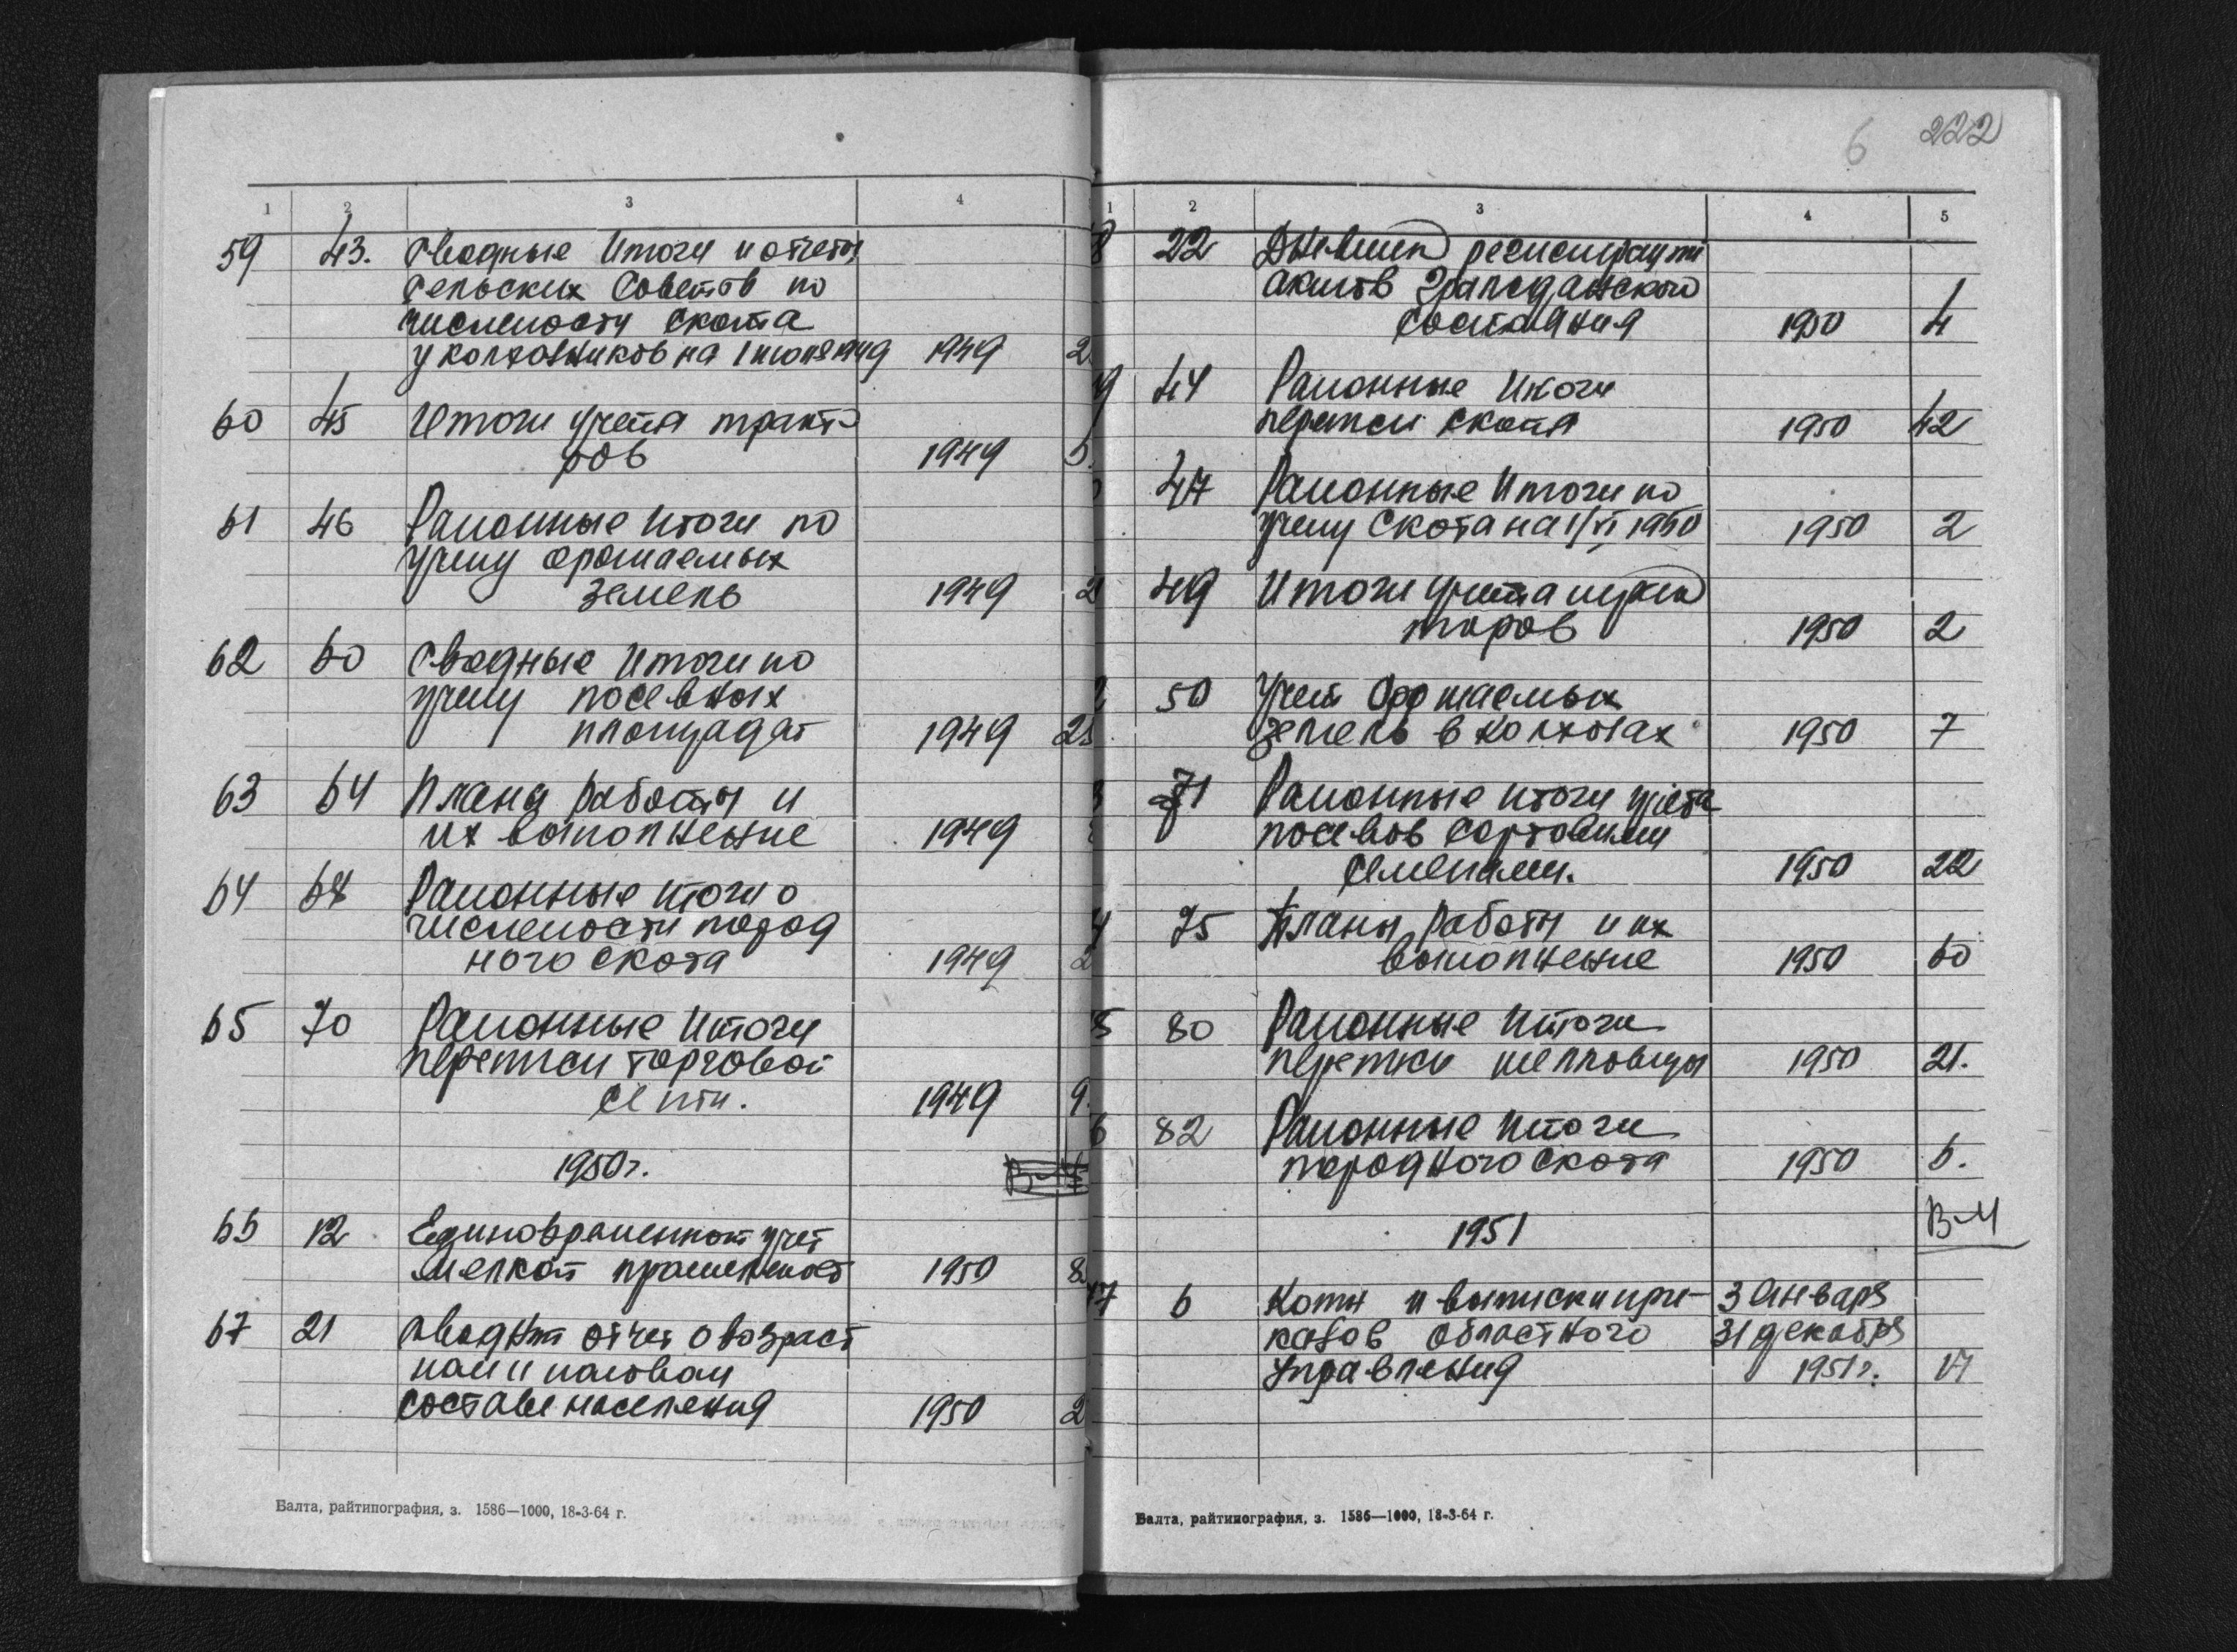 1 2 3 4
59 43. Сводные итоги и отчеты
сельских Советов по
численности скота
у колхозников на 1 июля 1949 1949 2
60 45 Итоги учета тракто
ров 1949
61 46 Районные итоги по
учету орошаемых
земель 1949 2
62 60 Сводные итоги по
учету посевных
площадей 1949 2
63 64 Плана работы и
их выполнение 1949
64 68 Районные итоги о
численности пород
ного скота 1949 2
65 70 Районные итоги
переписи торговой
сети. 1949 9
1950 г.
66 12 Единовременный учет
мелкой промышленност 1950 8
67 21 Сводный отчет о возраст
ном и половом
составе населения 1950 2
Балта, райтипография, з. 1586—1000, 18-3-64 г.
6 222
1 2 3 4 5
8 22 регистрации
актов гражданского
состояния 1950 4
9 44 Районные итоги
переписи скота 1950 42
47 Районные итоги по
учету скота на 1/VI 1950 1950 2
49 Итоги учета
1950 2
50 Учет орошаемых
земель в колхозах 1950 7
3 71 Районные итоги учета
посевов сортовыми
семенами. 1950 22
4 75 Планы работы и их
выполнение 1950 60
5 80 Районные итоги
переписи шелковицы 1950 21.
6 82 Районные итоги
породного скота 1950 6.
1951 В-4
77 6 Копии и выписки при- 3 января
казов областного 31 декабря
управления 1951 г. 17
Балта, райтипография, з. 1586—1000, 18-3-64 г.